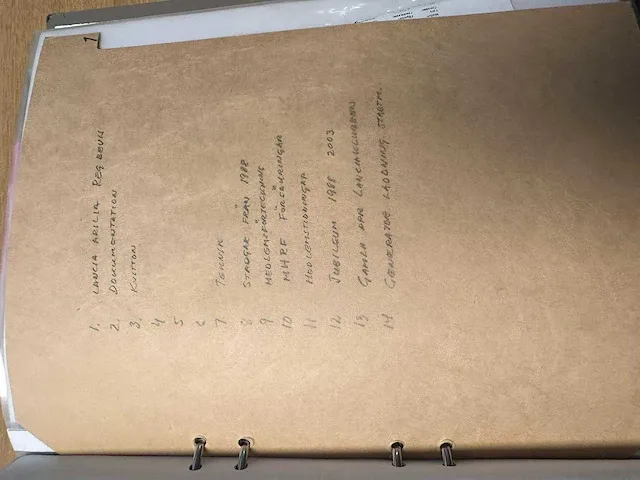 1
1. LANCIA APILIA REG BEVIS
2. DOKUMENTATION
3. KVITTON
4
5
6
7 TEKNIK
8 STADGAR FRÅN 1988
9 MEDLEMSFÖRTECKNING
10 MHRF FÖRSÄKRINGAR
11 MEDLEMSTIDNINGAR
12 JUBILEUM 1988 2003
13 GAMLA LANCIAKLUBBEN
14 GENERATOR LADDNING STARTM.